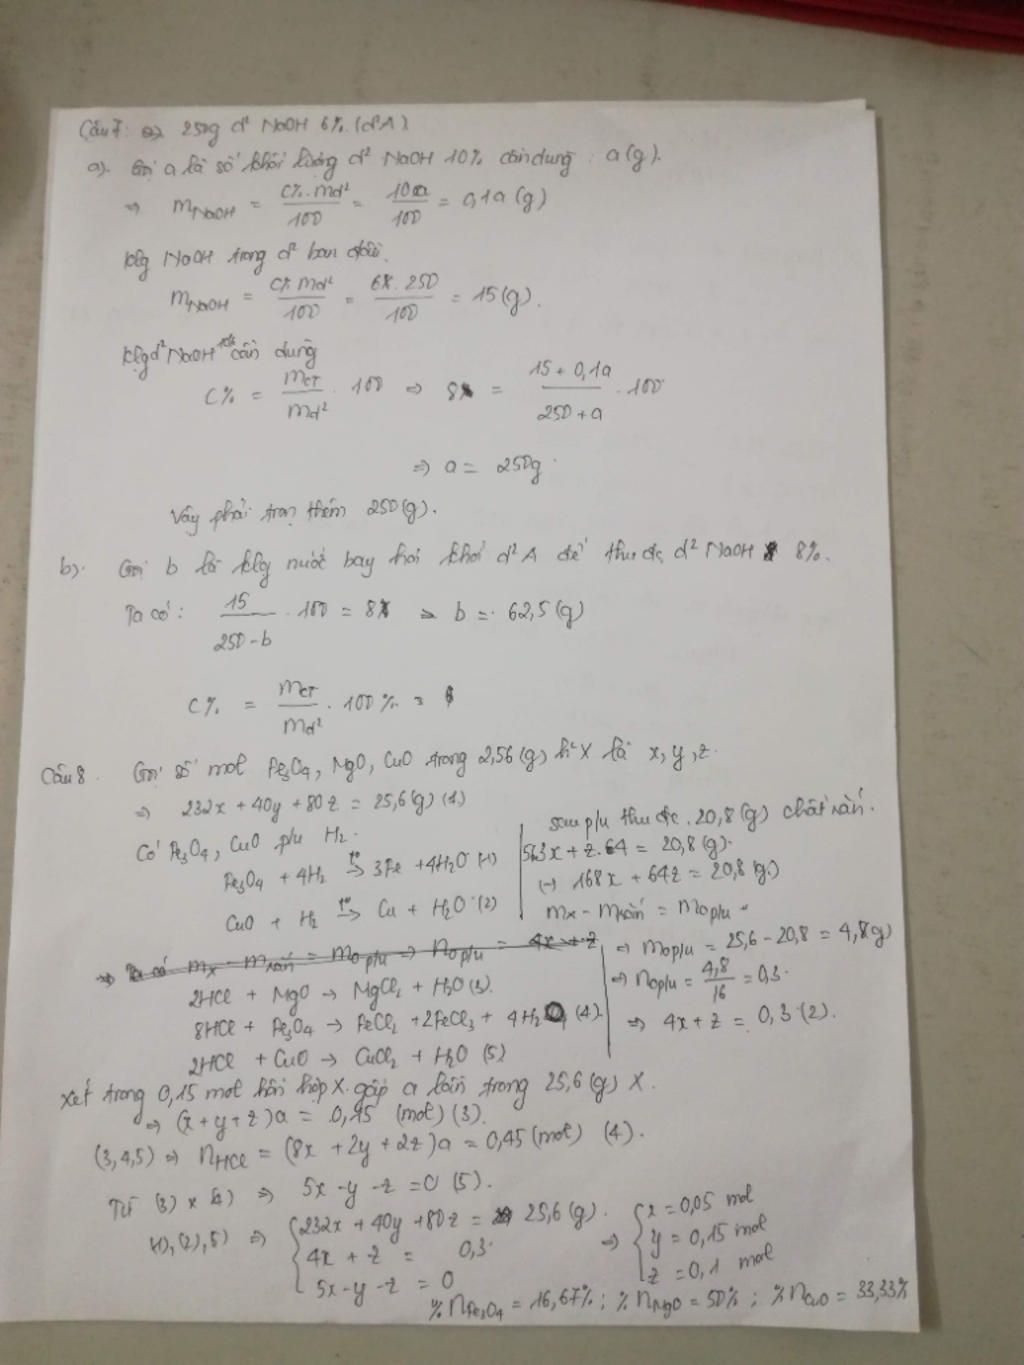 Câu 7: a) 250g d² NaOH 6% (d²A)
a). Gọi a là số khối lượng d² NaOH 10% cần dùng : a(g).
⇒ mNaOH = C%.md²/100 = 10a/100 = 0,1a (g)
klg NaOH trong d² ban đầu.
mNaOH = C%.md²/100 = 6.250/100 = 15(g).
klg d² NaOH 10% cần dùng
C% = mct/md² . 100 ⇒ 8 = (15 + 0,1a)/(250 + a) . 100
⇒ a = 250g.
Vậy phải trộn thêm 250(g).
b). Gọi b là klg nước bay hơi khỏi d² A để thu đc d² NaOH 8%.
Ta có: 15/(250-b) . 100 = 8 ⇒ b = 62,5 (g)
C% = mct/md² . 100% =
Câu 8. Gọi số mol Fe3O4, MgO, CuO trong 2,56(g) h² X là x, y, z.
⇒ 232x + 40y + 80z = 25,6(g) (1)
Có Fe3O4, CuO p/u H2.
Fe3O4 + 4H2 t°→ 3Fe + 4H2O (1)
CuO + H2 t°→ Cu + H2O (2)
sau p/u thu đc 20,8(g) chất rắn.
56.3x + z.64 = 20,8(g).
(→ 168x + 64z = 20,8(g)
mX - mrắn = mO p/u
⇒ Ta có mX - mrắn = mO p/u ⇒ nO p/u = 4x + z
⇒ mO p/u = 25,6 - 20,8 = 4,8(g)
⇒ nO p/u = 4,8/16 = 0,3.
⇒ 4x + z = 0,3 (2).
2HCl + MgO → MgCl2 + H2O (3).
8HCl + Fe3O4 → FeCl2 + 2FeCl3 + 4H2O (4).
2HCl + CuO → CuCl2 + H2O (5)
Xét trong 0,15 mol hỗn hợp X gấp a lần trong 25,6(g) X.
⇒ (x + y + z)a = 0,15 (mol) (3).
(3,4,5) ⇒ nHCl = (8x + 2y + 2z)a = 0,45(mol) (4).
Từ (3) x (4) ⇒ 5x - y - z = 0 (5).
(1), (2), (5) ⇒ { 232x + 40y + 80z = 25,6(g).
4x + z = 0,3
5x - y - z = 0
⇒ { x = 0,05 mol
y = 0,15 mol
z = 0,1 mol
%nFe3O4 = 16,67% ; %nMgO = 50% ; %nCuO = 33,33%